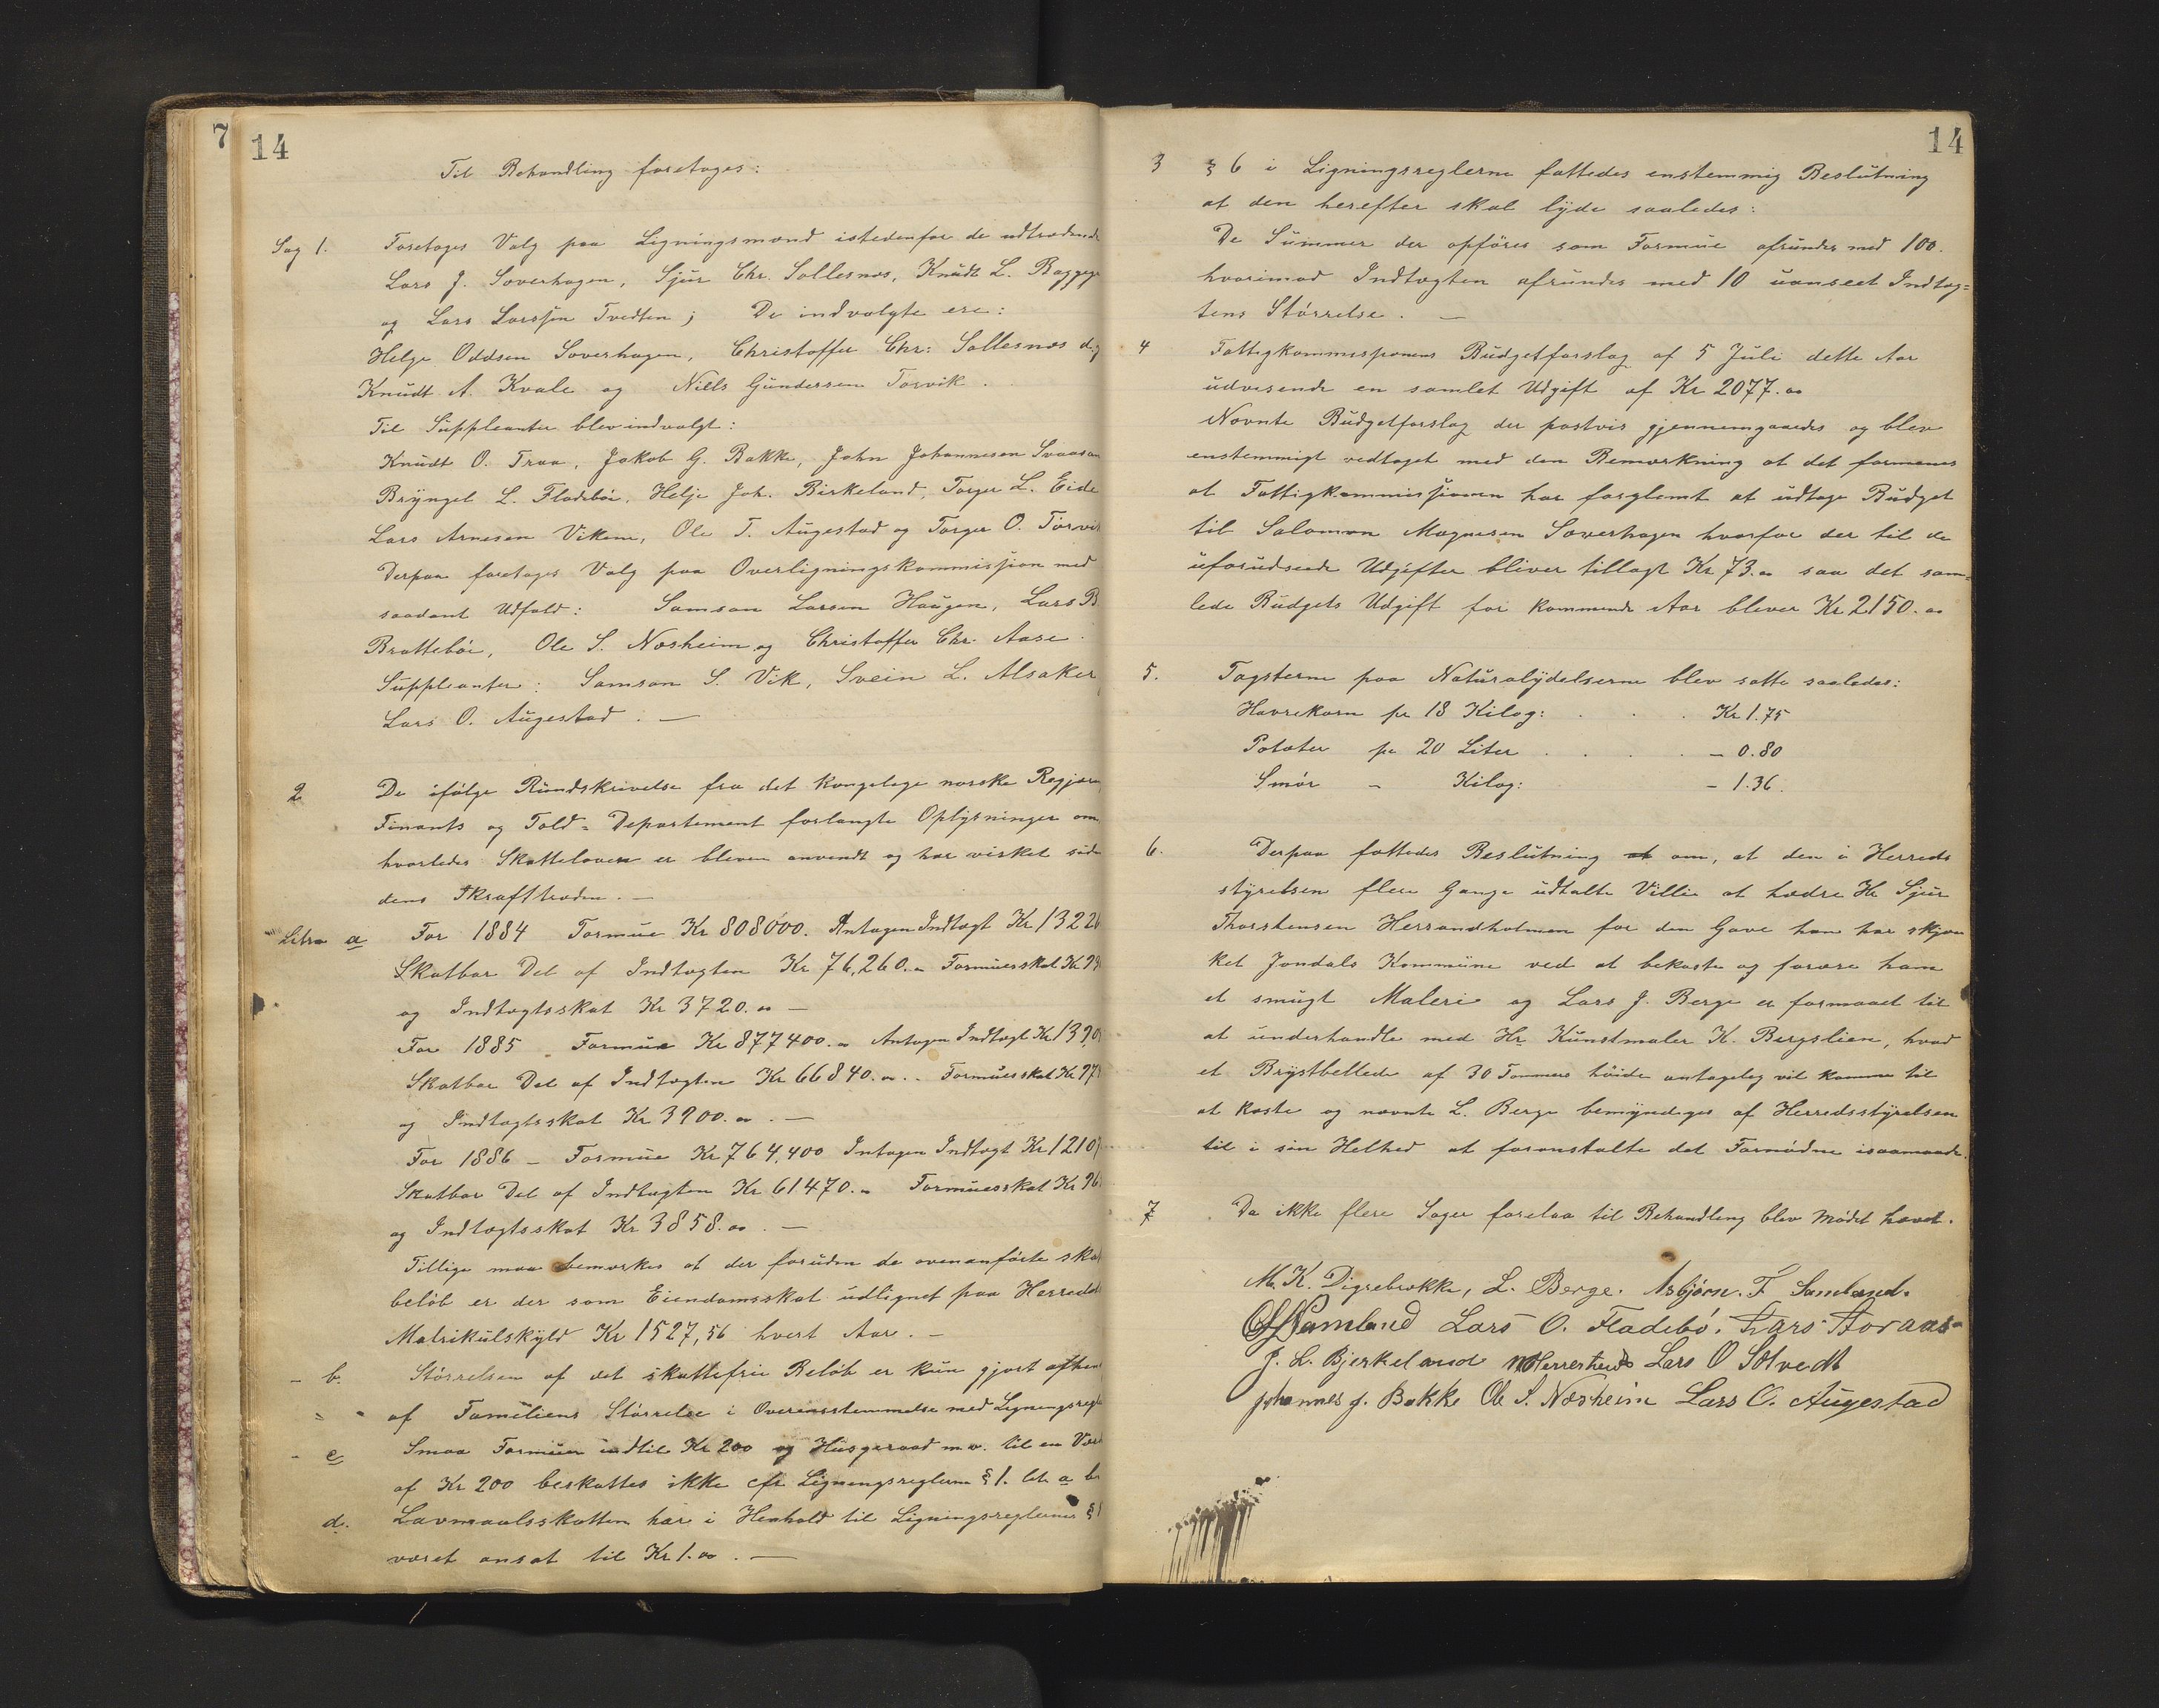 7
14
Til Behandling foretages:
Sag 1. Foretages Valg paa Ligningsmænd istedenfor de udtrædende
Lars J. Soverhagen, Sjur Chr. Sollesnes, Knudt L.
og Lars Larssen Tvedten; De indvalgte ere:
Helge Oddsen Soverhagen, Christoffer Chr: Sollesnes d.y
Knudt A. Kvale og Niels Gundersen Torvik.
Til Suppleanter blev indvalgt:
Knudt O. Traa, Jakob G. Bakke, John Johannesen
Bryngel L. Fladebøe, Helje Joh. Birkeland, Torger L. Eide
Lars Arnesen Vikene, Ole T. Augestad og Torger O. Torvik
Derpaa foretages Valg paa Overligningskommissjon med
saadant Udfald: Samson Larsen Haugen, Lars B
Brattebøe, Ole S. Næsheim og Christoffer Chr. Aase.
Suppleanter: Samson S. Vik, Svein L. Alsaker
Lars O. Augestad. —
2 De ifølge Rundskrivelse fra det kongelege norske Regjer
Finants og Told-Departement forlangte Oplysninger om
hvorledes Skatteloven er bleven anvendt og har virket sid
dens Ikrafttræden. —
Litra a For 1884 Formue Kr 808000. Antagen Indtægt Kr. 1322
Skatbar Del af Indtægten Kr 76,260.- Formuesskat Kr
og Indtægtsskat Kr 3720.00 —
For 1885 Formue Kr 877400.- Antagen Indtægt Kr 1390
Skatbar Del af Indtægten Kr 66840.00.. Formuesskat Kr 97
og Indtægtsskat Kr 3900.00. —
For 1886 — Formue Kr 764,400 Antagen Indtægt Kr 1210
Skatbar Del af Indtægten Kr 61470.- Formuesskat Kr 96
og Indtægtsskat Kr 3858.00. —
Tillige maa bemærkes at der foruden de ovenanførte skat
beløb er der som Eiendomsskat udlignet paa Herredets
Matrikulskyld Kr 1527,56 hvert Aar. —
- b. Størrelsen af det skattefrie Beløb er kun gjort afhen
" " af Familiens Størrelse i Overensstemmelse med Ligningsregl
- c Smaa Formuer indtil Kr 200 og Husgeraad m.v. til en Værd
af Kr 200 beskattes ikke cfr Ligningsreglerne § 1. litr a b
d. Lavmaalsskatten har i Henhold til Ligningsreglernes §
været ansat til Kr 1.00. —
14
3 § 6 i Ligningsreglerne fattedes enstemmig Beslutning
at den herefter skal lyde saaledes:
De Summer der opføres som Formue afrundes med 100.
hvorimod Indtægten afrundes med 10 uanseet Indtæg=
tens Størrelse. —
4 Fattigkommissjonens Budgetforslag af 5 Juli dette Aar
udvisende en samlet Udgift af Kr 2077.00
Nævnte Budgetforslag der postvis gjennemgaaedes og blev
enstemmigt vedtaget med den Bemærkning at det formenes
at Fattigkommissjonen har forglemt at udtage Budget
til Salomon Magnesen Soverhagen hvorfor der til de
uforudseede Udgifter bliver tillagt Kr 73.00 saa det sam=
lede Budgets Udgift for kommende Aar blever Kr 2150.00
5. Taxterne paa Naturalydelserne blev satte saaledes:
Havrekorn pr 18 Kilog: . . . Kr 1.75
Potæter pr 20 Liter . . . . — 0.80
Smør — Kilog: — 1.36.
6. Derpaa fattedes Beslutning at om, at den i Herreds
styrelsen flere Gange udtalte Villie at hædre Hr Sjur
Thorstensen Herrandholmen for den Gave han har skjæn
ket Jondals Kommune ved at bekoste og forære ham
et smugt Maleri og Lars J. Berge er formaaet til
at underhandle med Hr. Kunstmaler K. Bergslien, hvad
et Brystbellede af 30 Tommers høide antageleg vil komme til
at koste og nævnte L. Berge bemyndeges af Herredsstyrelsen
til i sin Helhed at foranstalte det Fornødne isaamaade.
7 Da ikke flere Sager forelaa til Behandling blev Mødet hævet.
M. K. Digrebrekke, L. Berge. Asbjørn. T Samland.
Samland Lars O. Fladebø. Lars
J. L. Bjerkeland Herrestvedt Lars O Solvedt
Johannes J. Bakke Ole S. Næsheim Lars O. Augestad